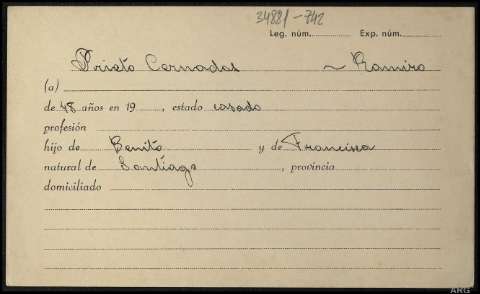 34881-742
Leg. núm. Exp. núm.
Prieto Cernadas ~ Ramiro
(a)
de 48 años en 19 , estado casado
profesión
hijo de Benito y de Francisca
natural de Santiago , provincia
domiciliado
ARG